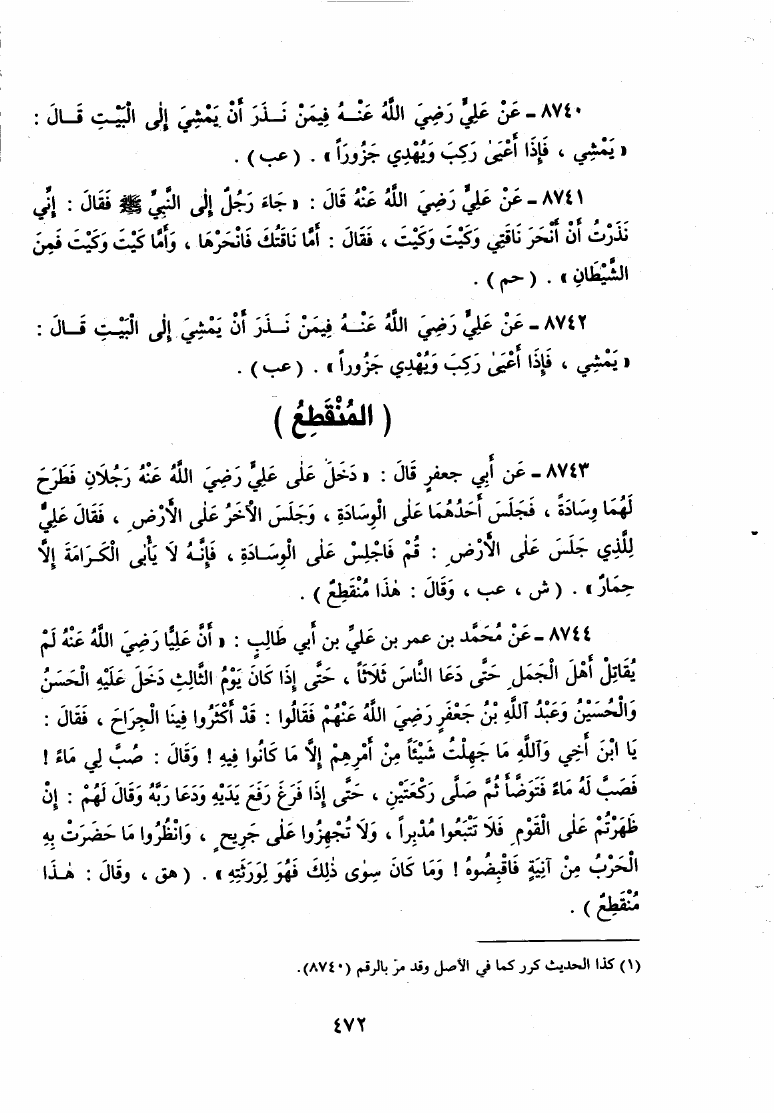 ٨٧٤٠ - عَنْ عَلِيٍّ رَضِيَ اللَّهُ عَنْهُ فِيمَنْ نَذَرَ أَنْ يَمْشِيَ إِلى الْبَيْتِ قَالَ :
« يَمْشِي ، فَإِذَا أَعْيَىٰ رَكِبَ وَيُهْدِي جَزُوراً » . ( عب ) .
٨٧٤١ - عَنْ عَلِيٍّ رَضِيَ اللَّهُ عَنْهُ قَالَ : « جَاءَ رَجُلٌ إِلى النَّبِيِّ ﷺ فَقَالَ : إِنِّي
نَذَرْتُ أَنْ أَنْحَرَ نَاقَتِي وَكَيْتَ وَكَيْتَ ، فَقَالَ : أَمَّا نَاقَتُكَ فَانْحَرْهَا ، وَأَمَّا كَيْتَ وَكَيْتَ فَمِنَ
الشَّيْطَانِ » . ( حم ) .
٨٧٤٢ - عَنْ عَلِيٍّ رَضِيَ اللَّهُ عَنْهُ فِيمَنْ نَذَرَ أَنْ يَمْشِيَ إِلى الْبَيْتِ قَالَ :
« يَمْشِي ، فَإِذَا أَعْيَىٰ رَكِبَ وَيُهْدِي جَزُوراً » . ( عب ) .
( المُنْقَطِعُ )
٨٧٤٣ - عَن أَبي جعفرٍ قَالَ : « دَخَلَ عَلى عَلِيٍّ رَضِيَ اللَّهُ عَنْهُ رَجُلَانِ فَطَرَحَ
لَهُمَا وِسَادَةً ، فَجَلَسَ أَحَدُهُمَا عَلى الْوِسَادَةِ ، وَجَلَسَ الآخَرُ عَلى الأَرْضِ ، فَقَالَ عَلِيٌّ
لِلَّذِي جَلَسَ عَلى الأَرْضِ : قُمْ فَاجْلِسْ عَلى الْوِسَادَةِ ، فَإِنَّهُ لَا يَأْبى الْكَرَامَةَ إِلَّا
حِمَارٌ » . ( ش ، عب ، وَقَالَ : هٰذَا مُنْقَطِعٌ ) .
٨٧٤٤ - عَنْ مُحَمَّد بن عمر بن عَليِّ بن أَبي طَالِبٍ : « أَنَّ عَلِيًّا رَضِيَ اللَّهُ عَنْهُ لَمْ
يُقَاتِلْ أَهْلَ الْجَمَلِ حَتَّى دَعَا النَّاسَ ثَلَاثاً ، حَتَّى إِذَا كَانَ يَوْمُ الثَّالِثِ دَخَلَ عَلَيْهِ الْحَسَنُ
وَالْحُسَيْنُ وَعَبْدُ ٱللَّهِ بْنُ جَعْفَرٍ رَضِيَ اللَّهُ عَنْهُمْ فَقَالُوا : قَدْ أَكْثَرُوا فِينَا الْجِرَاحَ ، فَقَالَ :
يَا ابْنَ أَخِي وَٱللَّهِ مَا جَهِلْتُ شَيْئاً مِنْ أَمْرِهِمْ إِلَّا مَا كَانُوا فِيهِ ! وَقَالَ : صُبَّ لِي مَاءً !
فَصَبَّ لَهُ مَاءً فَتَوَضَّأَ ثُمَّ صَلَّى رَكْعَتَيْنِ ، حَتَّى إِذَا فَرَغَ رَفَعَ يَدَيْهِ وَدَعَا رَبَّهُ وَقَالَ لَهُمْ : إِنْ
ظَهَرْتُمْ عَلى الْقَوْمِ فَلَا تَتْبَعُوا مُدْبِراً ، وَلَا تُجْهِزُوا عَلى جَرِيحٍ ، وَانْظُرُوا مَا حَضَرَتْ بِهِ
الْحَرْبُ مِنْ آنِيَةٍ فَاقْبِضُوهُ ! وَمَا كَانَ سِوٰى ذٰلِكَ فَهُوَ لِوَرَثَتِهِ » . ( هق ، وقَالَ : هٰذَا
مُنْقَطِعٌ ) .
(١) كذا الحديث كرر كما في الأصل وقد مرّ بالرقم (٨٧٤٠).
٤٧٢